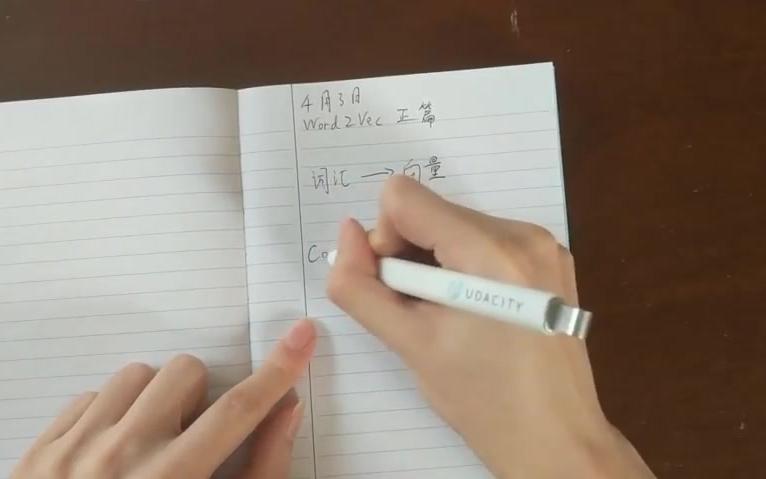 4月3日
Word2Vec 正篇
词汇 → 向量
Co
UDACITY